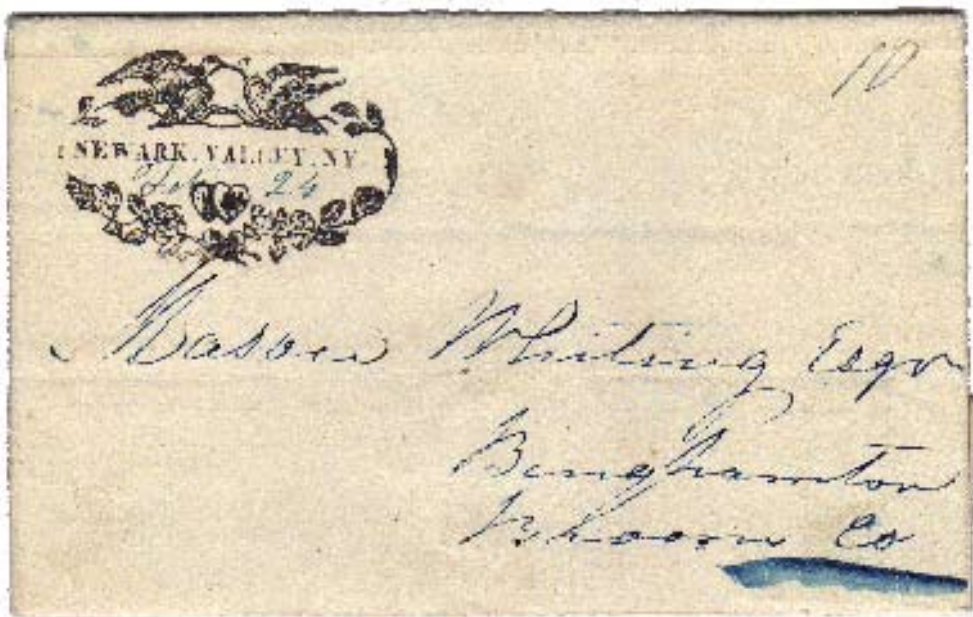 10
NEWARK. VALLEY. NY
Feb 24
Mason Whiting Esqr
Binghamton
Broome Co